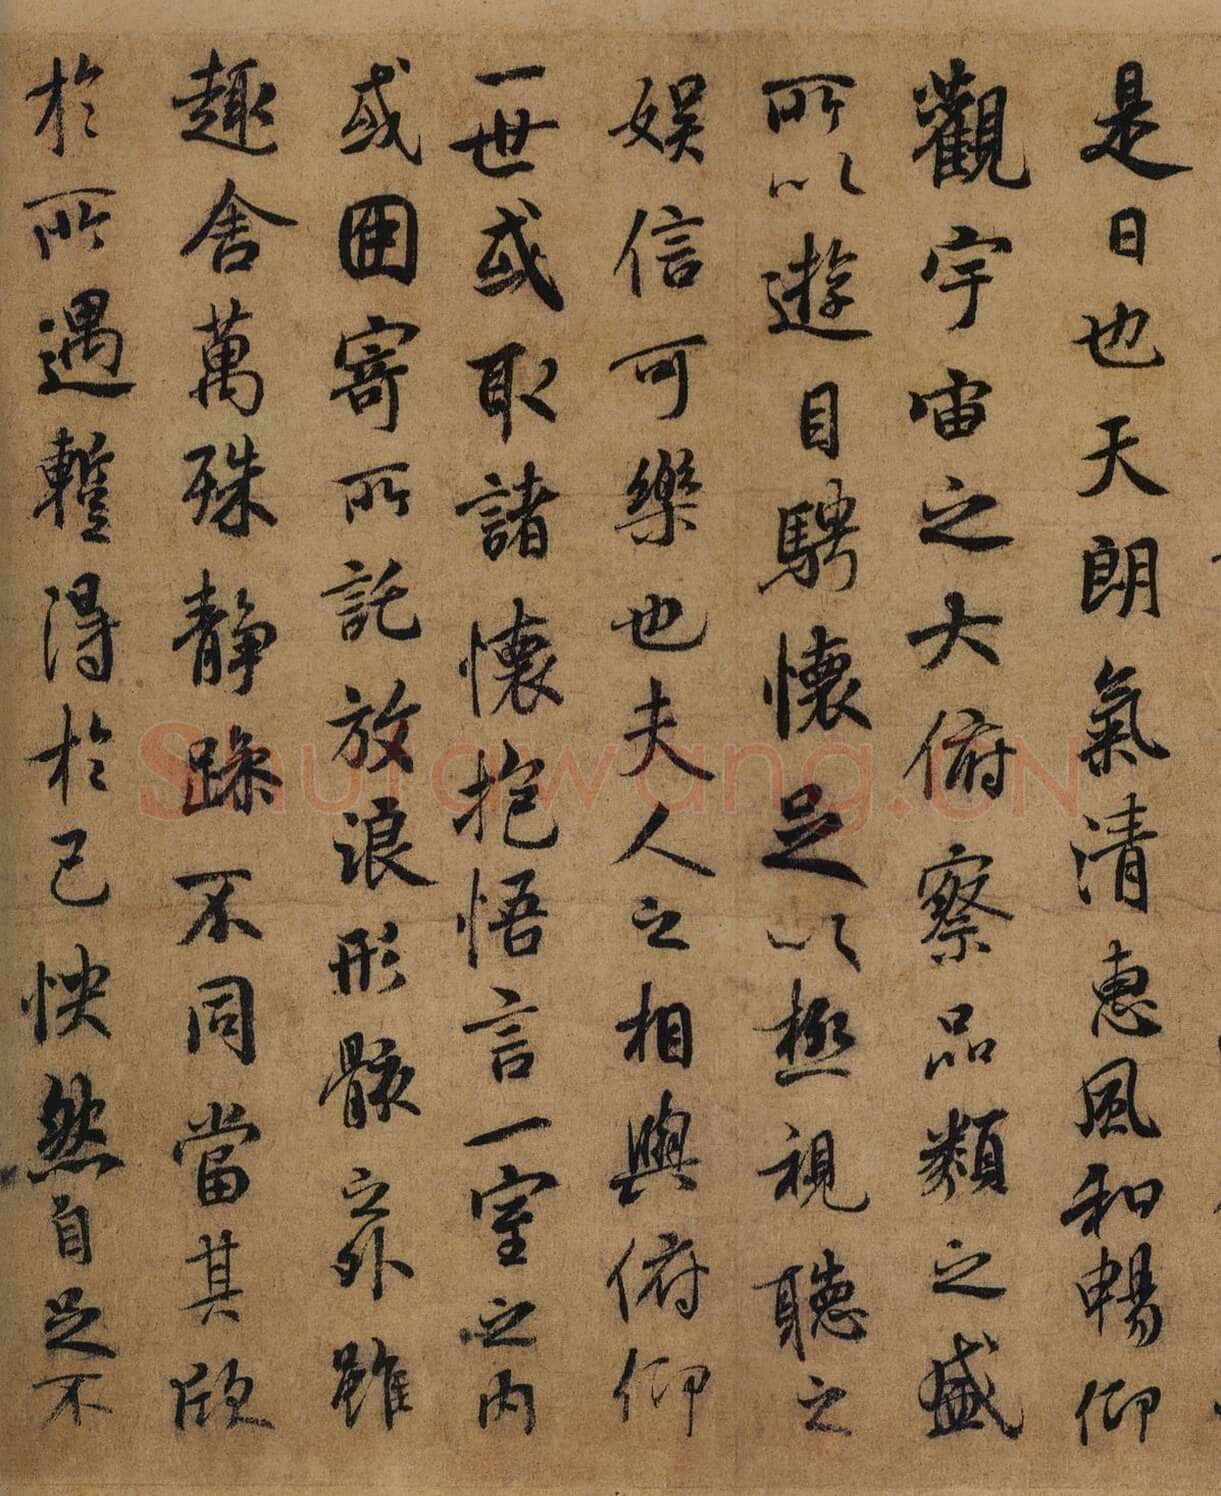 是日也天朗氣清惠風和暢仰
觀宇宙之大俯察品類之盛
所以遊目騁懷足以極視聽之
娛信可樂也夫人之相與俯仰
一世或取諸懷抱悟言一室之內
或因寄所託放浪形骸之外雖
趣舍萬殊靜躁不同當其欣
於所遇蹔得於己怏然自足不
Shufawang.CN